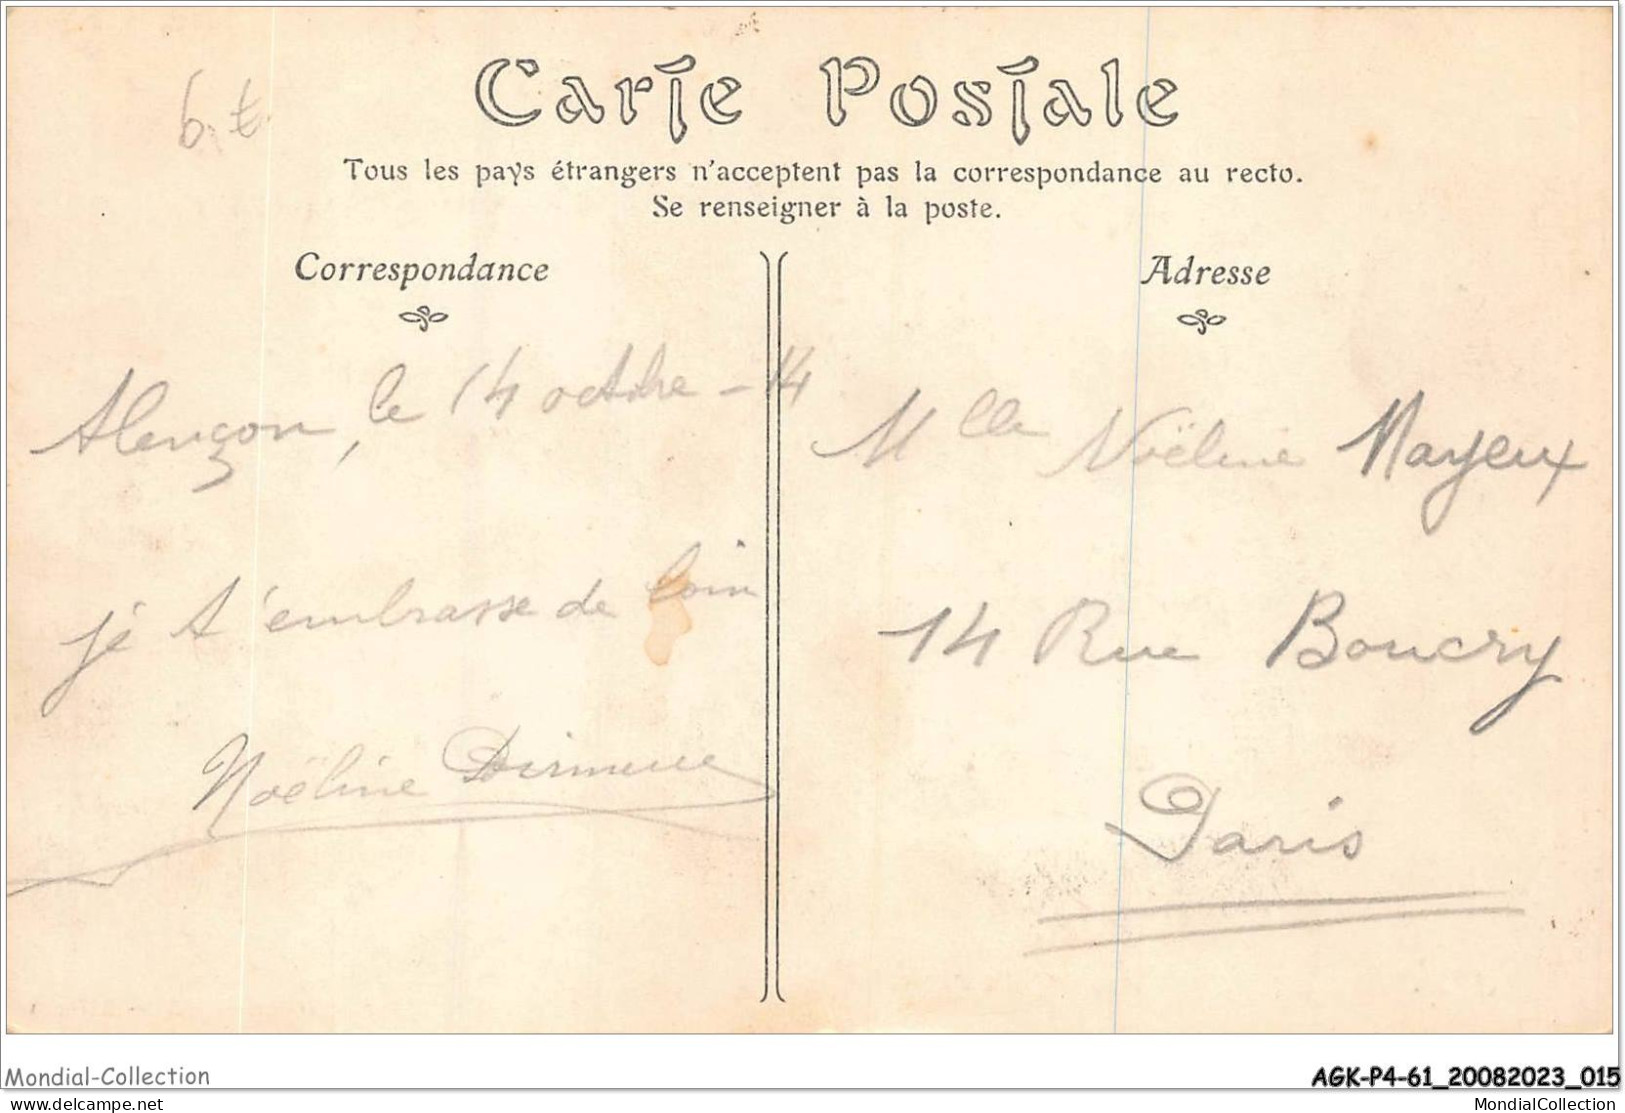 Carte Postale
Tous les pays étrangers n'acceptent pas la correspondance au recto.
Se renseigner à la poste.
Correspondance
Alençon, le 14 octbre - 14
je t'embrasse de loin
Noëline
Adresse
Mlle Noëline Mayeux
14 Rue Boucry
Paris
Mondial-Collection
AGK-P4-61_20082023_015
delcampe.net
MondialCollection